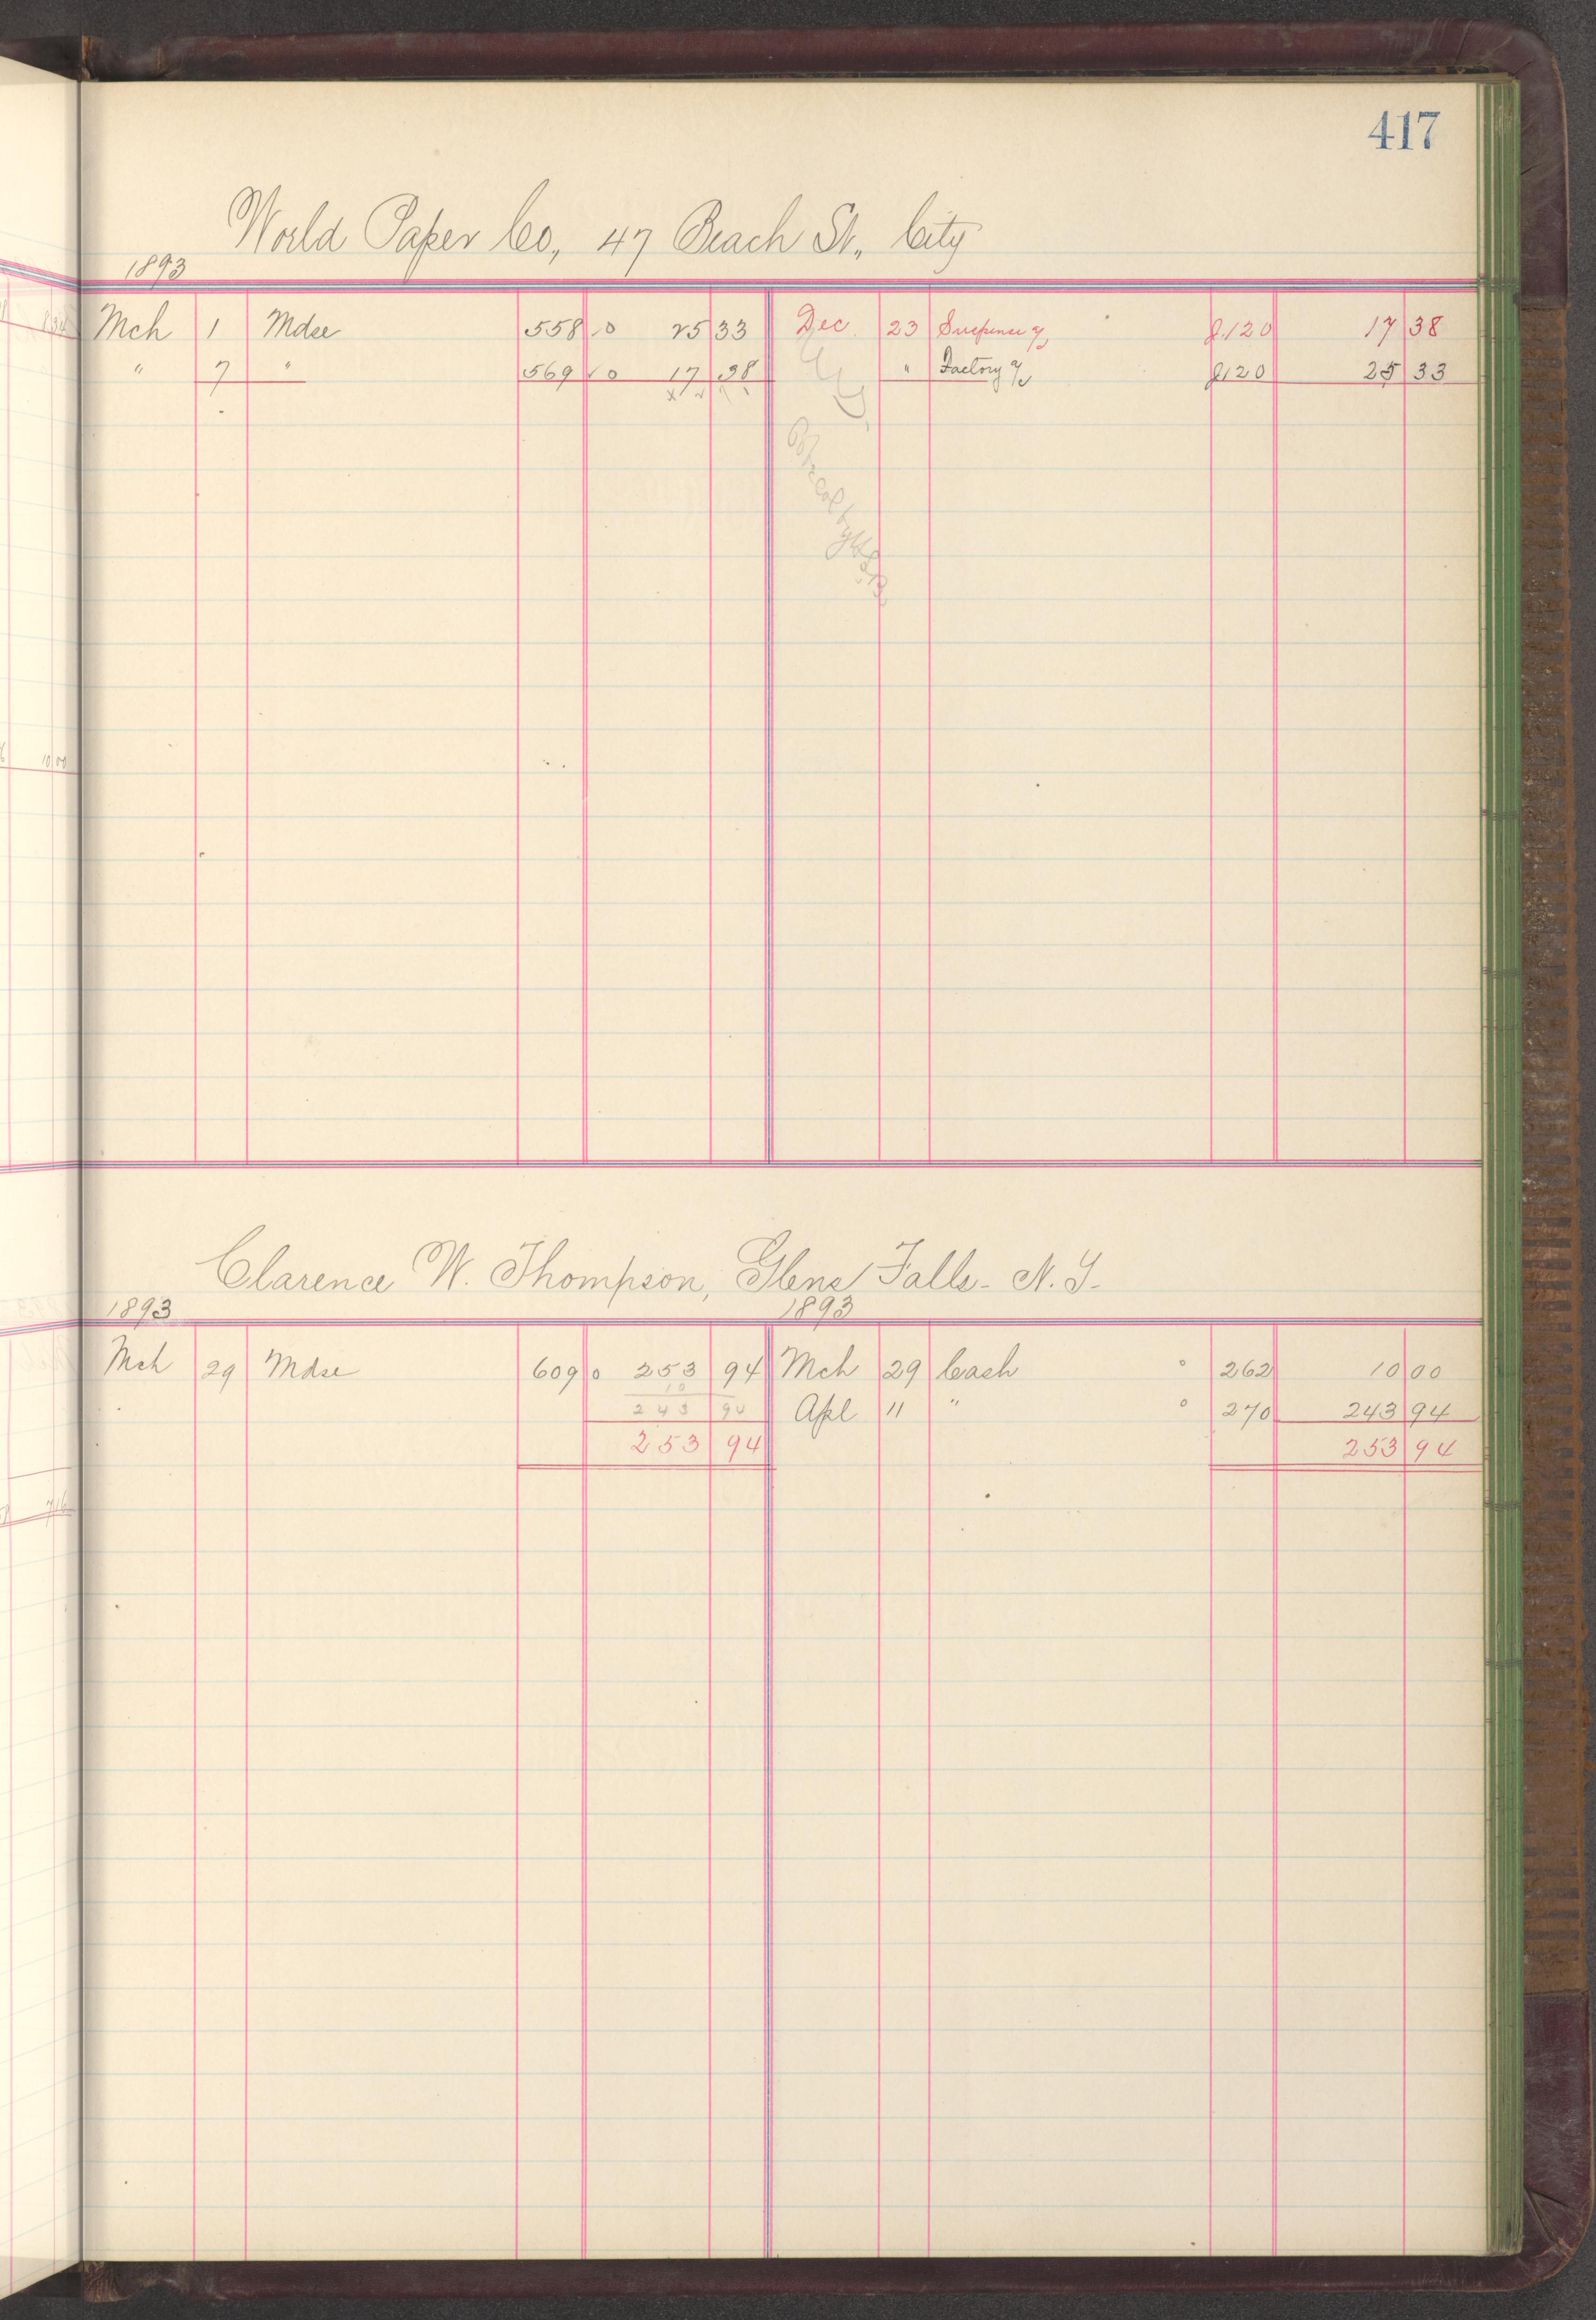 417
World Paper Co, 47 Beach St., City
1893
Mch 1 Mdse 558 0 25 33 Dec. 23 Suspense a/c J.120 17 38
" 7 " 569 0 17 38 " Factory a/c J120 25 33
Clarence W. Thompson, Glens Falls - N.Y.
1893 1893
Mch 29 Mdse 609 0 253 94 Mch 29 Cash 262 10 00
10
243 94 Apl 11 " 270 243 94
253 94 253 94